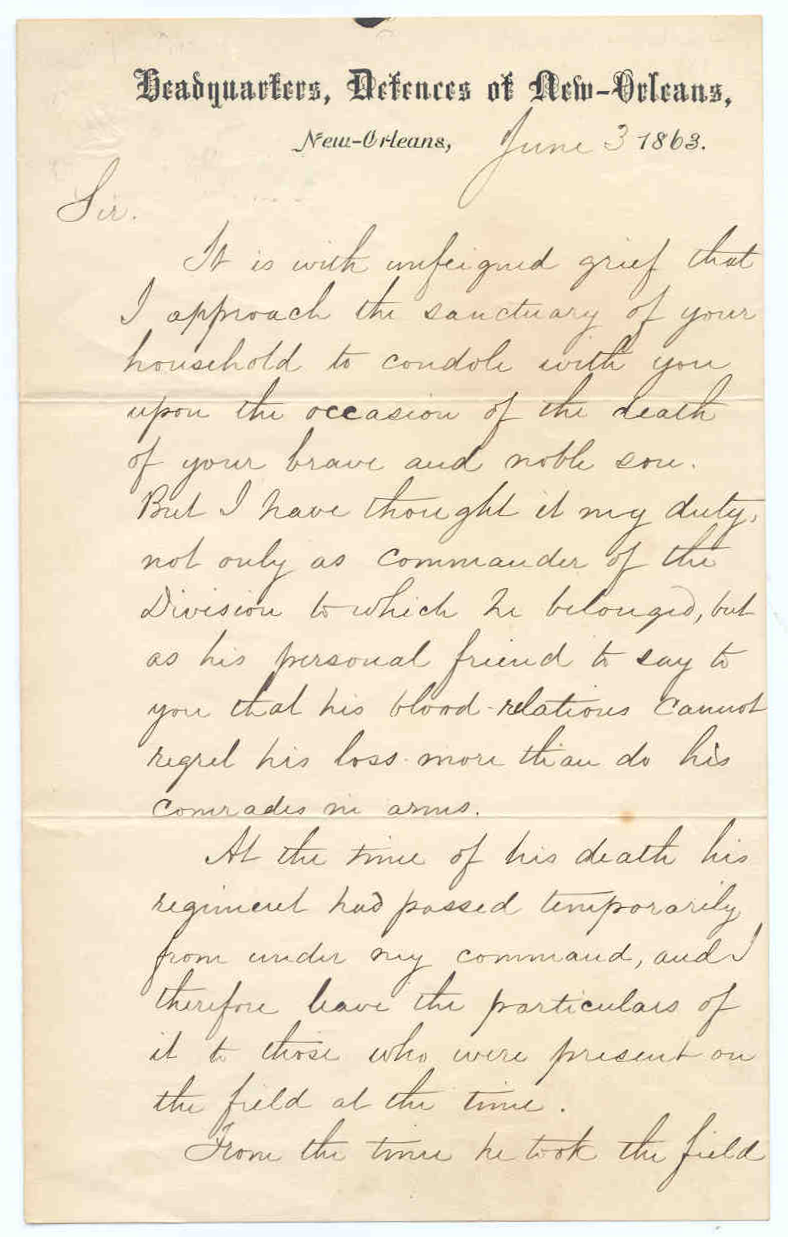 Headquarters, Defences of New-Orleans,
New-Orleans, June 3 1863.
Sir.
It is with unfeigned grief that
I approach the sanctuary of your
household to condole with you
upon the occasion of the death
of your brave and noble son.
But I have thought it my duty,
not only as commander of the
Division to which he belonged, but
as his personal friend to say to
you that his blood-relations cannot
regret his loss more than do his
comrades in arms.
At the time of his death his
regiment had passed temporarily
from under my command, and I
therefore leave the particulars of
it to those who were present on
the field at the time.
From the time he took the field